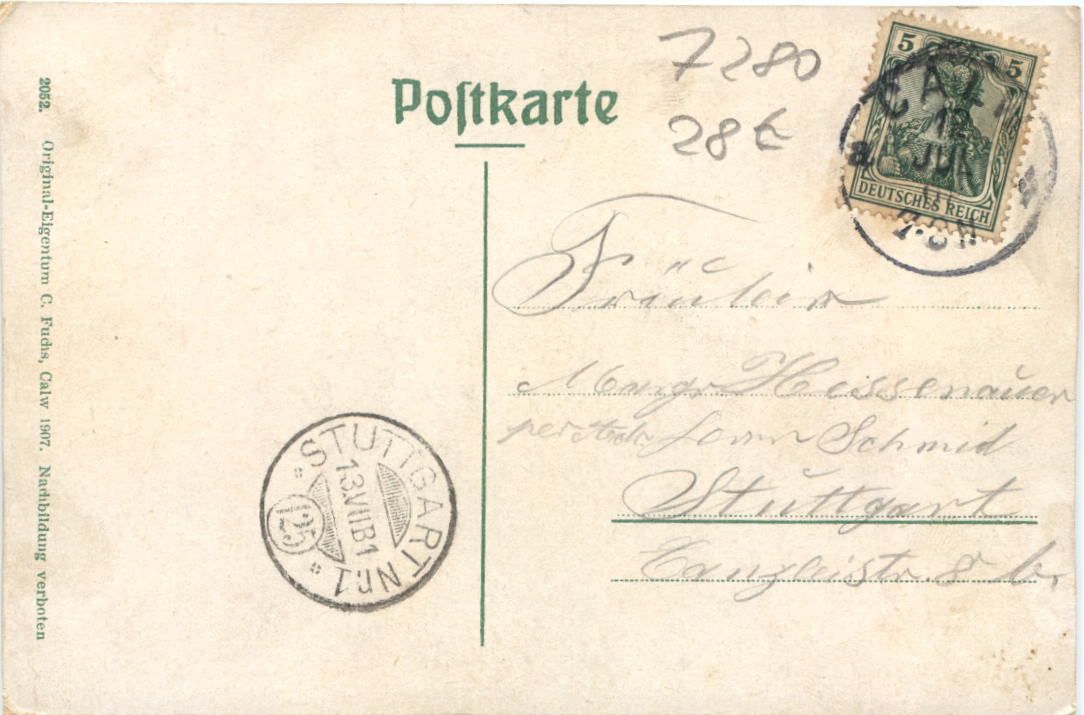 2052. Original-Eigentum C. Fuchs, Calw 1907. Nachbildung verboten
Poſtkarte
7280
28€
5 5
DEUTSCHES REICH
CAL
12
JUL
Fräulein
Heissenauer
Schmid
Stuttgart
Canzleistr. 8 b.
STUTTGART Nr.1
13.VII
125